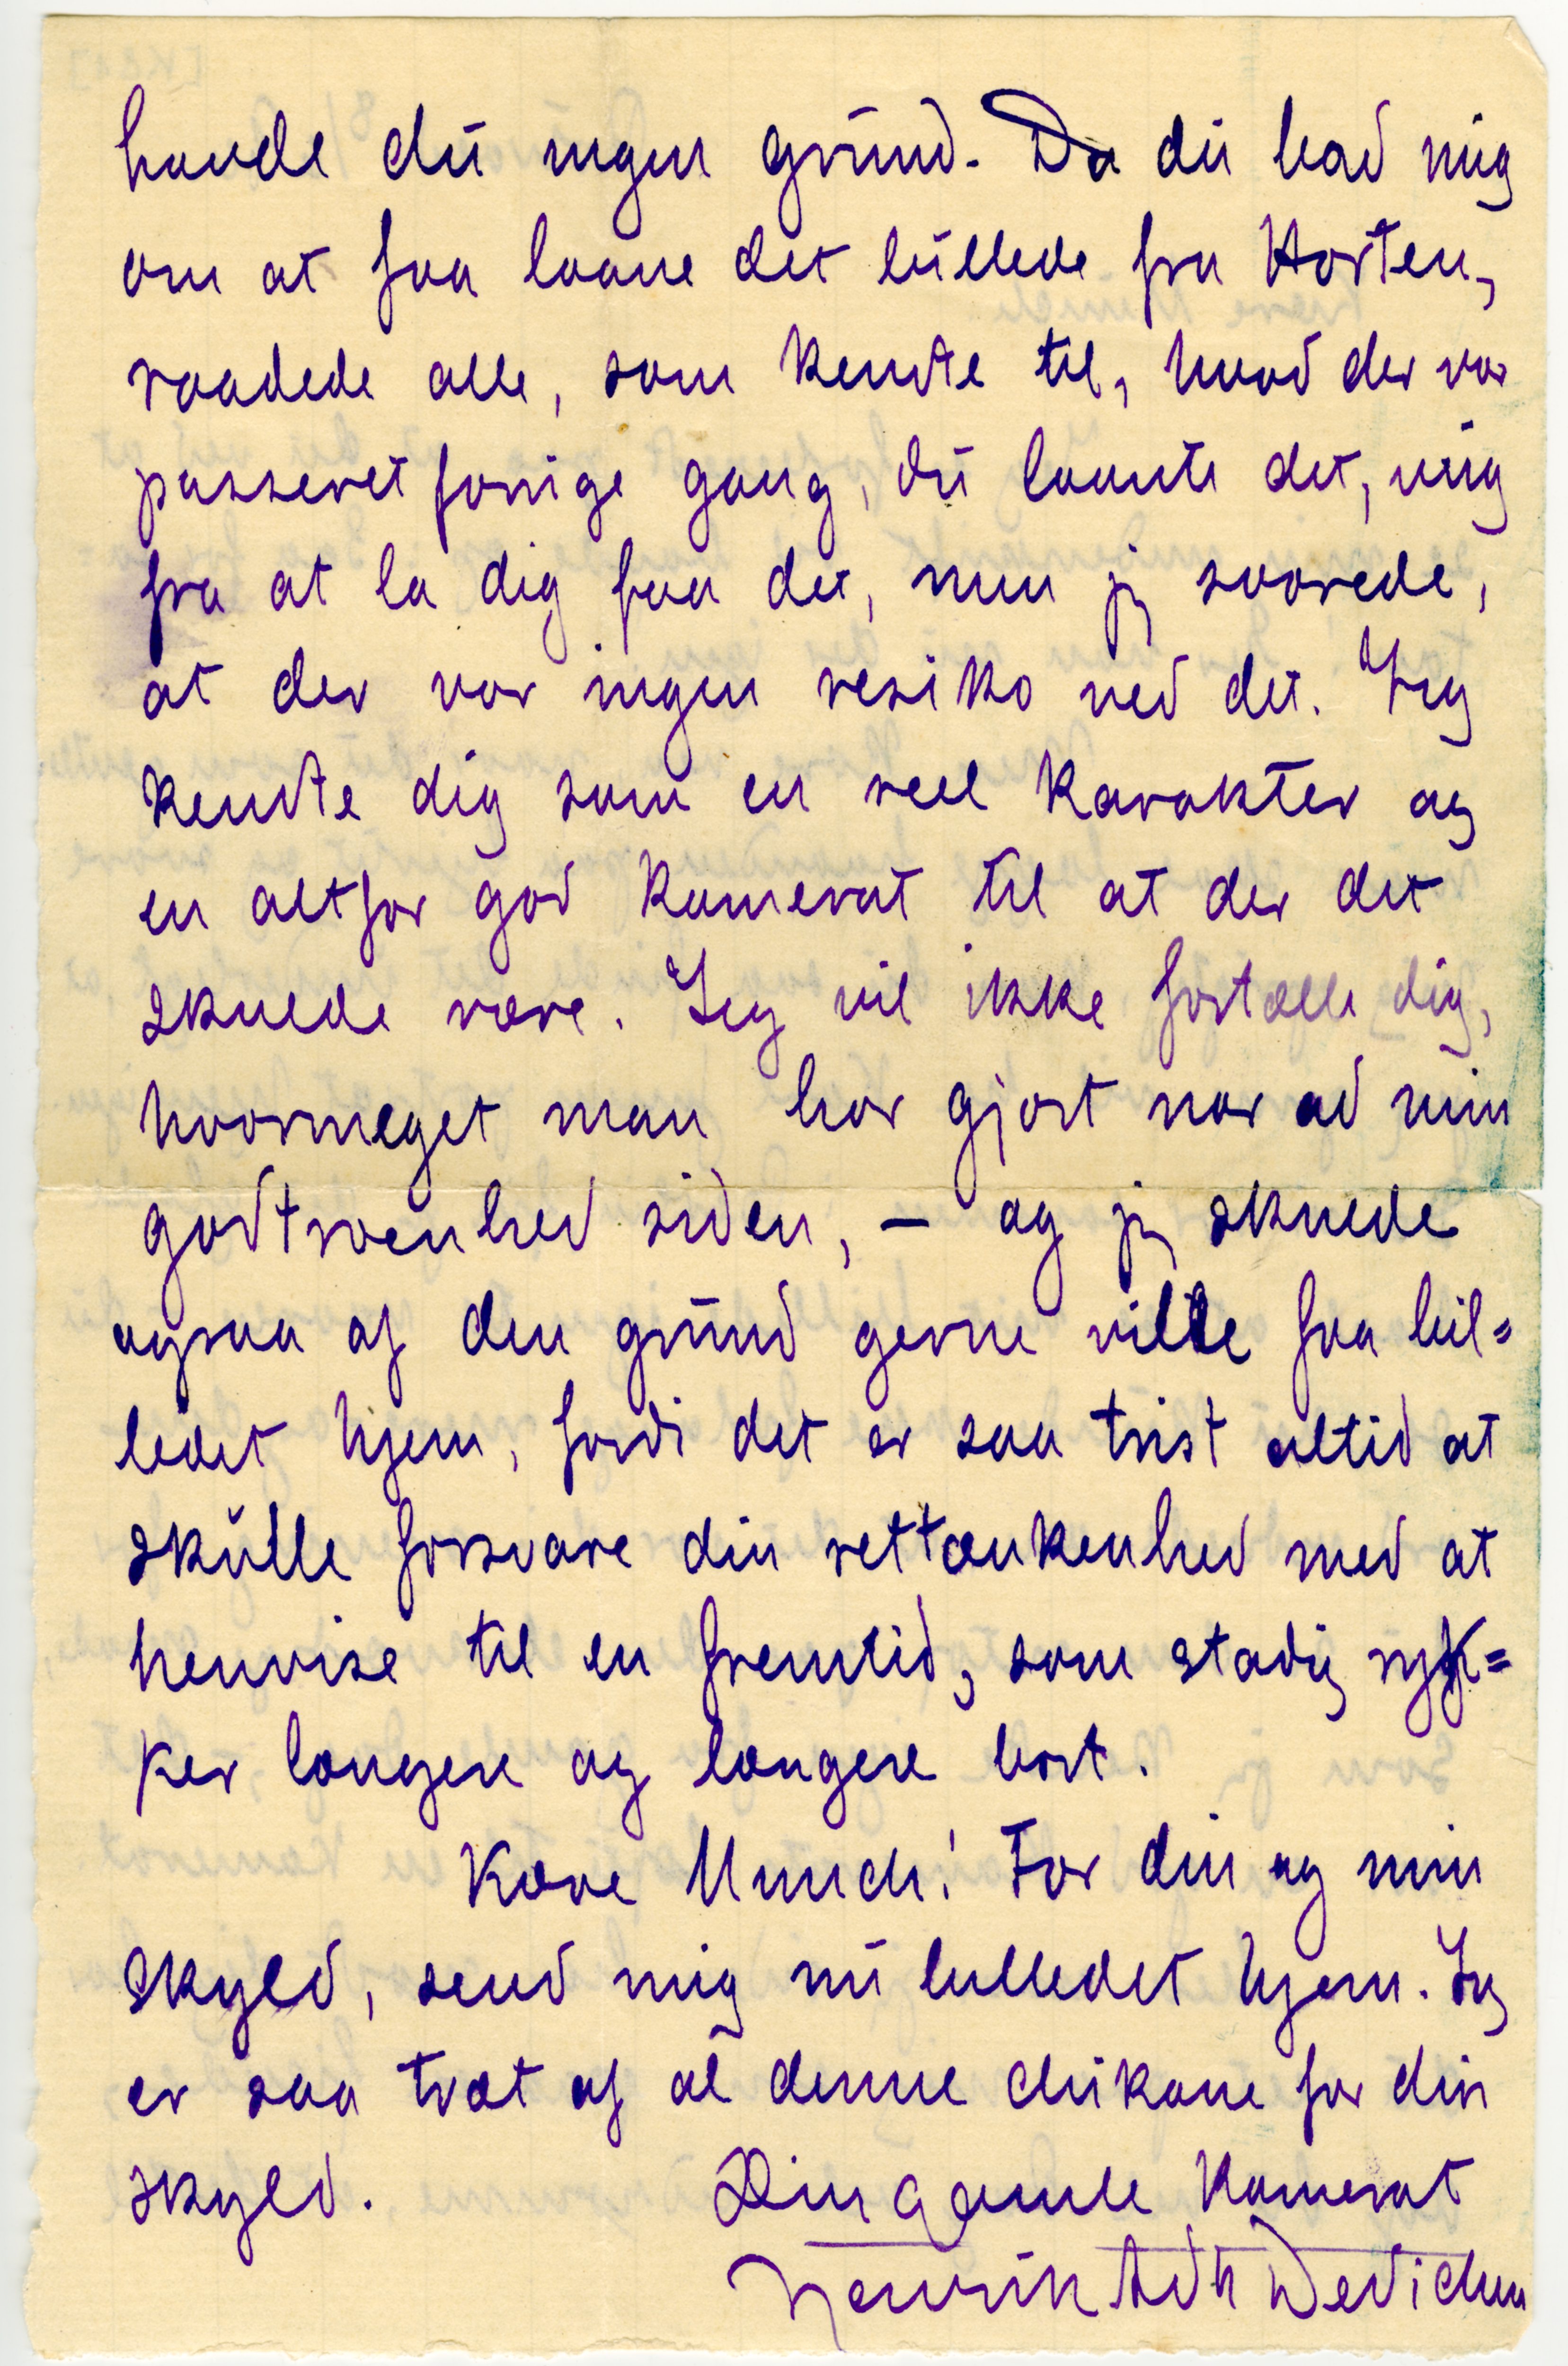 havde du ingen grund. Da du bad mig
om at faa laane det billede fra Horten,
raadede alle, som kendte til, hvad der var
passeret forrige gang, du laante det, mig
fra at la dig faa det, men jeg svarede,
at der var ingen resiko ved det. Jeg
kendte dig som en reel karakter og
en altfor god kamerat til at der det
skulde være. Jeg vil ikke fortælle dig,
hvormeget man har gjort nar ad min
godtroenhed siden, – og jeg skulde
ogsaa af den grund gerne ville faa bil=
ledet hjem, fordi det er saa trist altid at
skulle forsvare din rettænkenhed med at
henvise til en fremtid, som stadig ryk=
ker længere og længere bort.
Kære Munch! For din og min
skyld, send mig nu billedet hjem. Jeg
er saa træt af al denne chikane for din
skyld. Din gamle Kamerat
Henrik Adth Dedichen